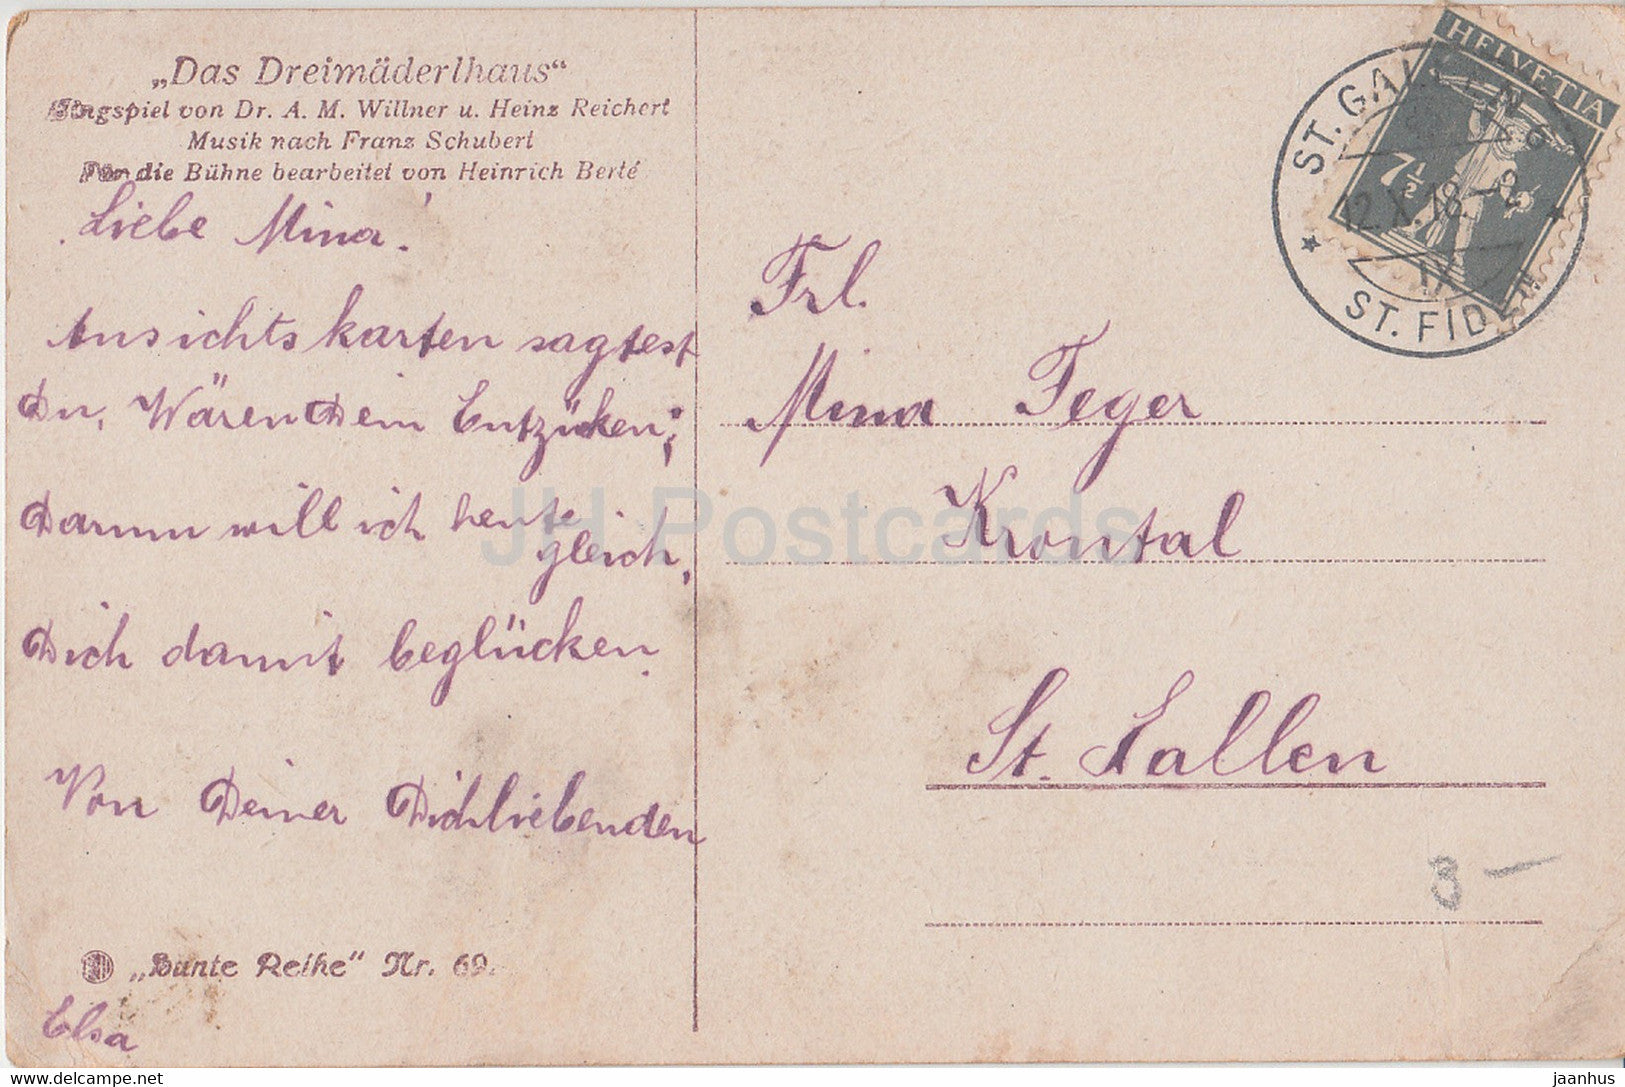 „Das Dreimäderlhaus“
Singspiel von Dr. A. M. Willner u. Heinz Reichert
Musik nach Franz Schubert
Für die Bühne bearbeitet von Heinrich Berté
Liebe Mina!
Ansichtskarten sagtest
Du, Wären Dein Entzücken;
Darum will ich heute
gleich,
Dich damit beglücken.
Von Deiner Dichliebenden
„Bunte Reihe“ Nr. 69.
Elsa
HELVETIA
7½
ST. GALLEN 6
12.X.18.-12
IX
ST. FIDEN
Frl.
Mina Feger
Krontal
St. Gallen
3 —
JH Postcards
delcampe.net
jaanhus